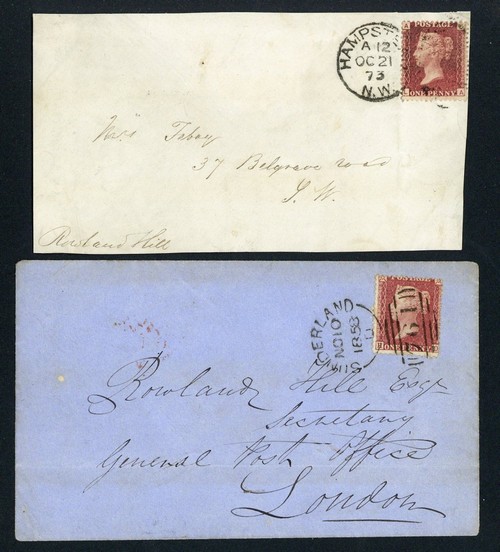 HAMPST
A 12
OC 21
73
N.W.
POSTAGE
ONE PENNY
Mrs Tabay
37 Belgrave road
S. W.
Rowland Hill
SUNDERLAND
NO 10
1858
ONE PENNY
Rowland Hill Esqr
Secretary
General Post Office
London